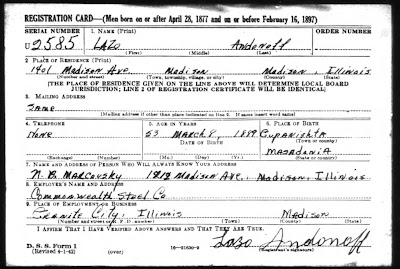 REGISTRATION CARD—(Men born on or after April 28, 1877 and on or before February 16, 1897)
SERIAL NUMBER 1. NAME (Print) ORDER NUMBER
U 2585 LAZO Andonoff
(First) (Middle) (Last)
2. PLACE OF RESIDENCE (Print)
1401 Madison Ave. Madison Madison, Illinois
(Number and street) (Town, township, village, or city) (County) (State)
[THE PLACE OF RESIDENCE GIVEN ON THE LINE ABOVE WILL DETERMINE LOCAL BOARD
JURISDICTION; LINE 2 OF REGISTRATION CERTIFICATE WILL BE IDENTICAL]
3. MAILING ADDRESS
Same
[Mailing address if other than place indicated on line 2. If same insert word same]
4. TELEPHONE 5. AGE IN YEARS 6. PLACE OF BIRTH
None 53 MARCH 9, 1889 Cupanishta
DATE OF BIRTH (Town or county)
MASADONIA
(Exchange) (Number) (Mo.) (Day) (Yr.) (State or country)
7. NAME AND ADDRESS OF PERSON WHO WILL ALWAYS KNOW YOUR ADDRESS
N. B. MARCOVSKY 1812 Madison Ave. Madison, Illinois
8. EMPLOYER'S NAME AND ADDRESS
Commonwealth Steel Co
9. PLACE OF EMPLOYMENT OR BUSINESS
Granite City, Illinois Madison
(Number and street or R. F. D. number) (Town) (County) (State)
I AFFIRM THAT I HAVE VERIFIED ABOVE ANSWERS AND THAT THEY ARE TRUE.
D. S. S. Form 1
(Revised 4-1-42) (over) Lazo Andonoff
(Registrant's signature)